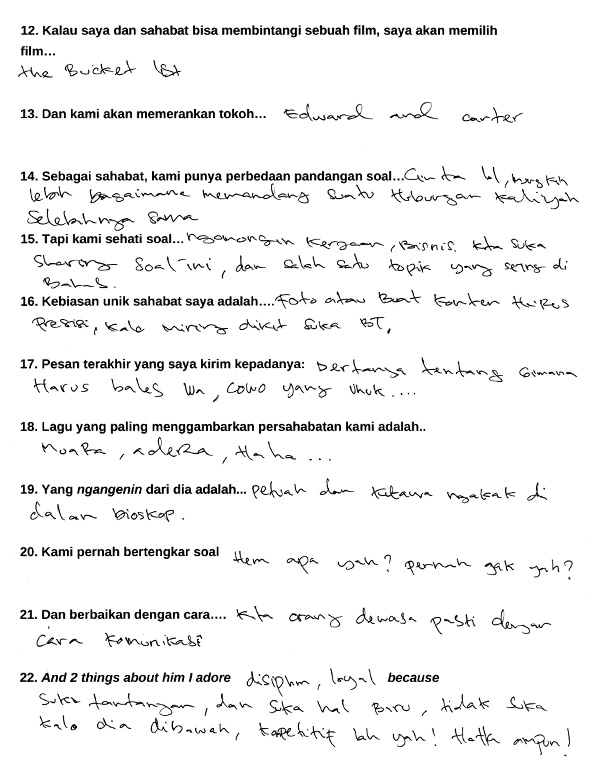 12. Kalau saya dan sahabat bisa membintangi sebuah film, saya akan memilih
film…
the Bucket list
13. Dan kami akan memerankan tokoh… Edward and carter
14. Sebagai sahabat, kami punya perbedaan pandangan soal…Cinta lol, mungkin
lebih bagaimana memandang suatu Hubungan kali yah
Selebihnya sama
15. Tapi kami sehati soal…ngomongin Kerjaan, Bisnis. kta Suka
Sharing Soal ini, dan salah satu topik yang sering di
Bahas.
16. Kebiasan unik sahabat saya adalah….Foto atau Buat konten Harus
Presisi, kalo miring dikit suka BT,
17. Pesan terakhir yang saya kirim kepadanya: bertanya tentang Gimana
Harus bales wa, cowo yang
18. Lagu yang paling menggambarkan persahabatan kami adalah..
Muara, adera, Haha ...
19. Yang ngangenin dari dia adalah... petuah dan ketawa ngakak di
dalam bioskop.
20. Kami pernah bertengkar soal Hem apa yah? pernah gak yah?
21. Dan berbaikan dengan cara…. kta orang dewasa pasti dengan
cara komunikasi
22. And 2 things about him I adore disiplin, loyal because
Suka tantangan, dan suka hal Baru, tidak suka
kalo dia dibawah, kopetitif lah yah! Hatta ampun!